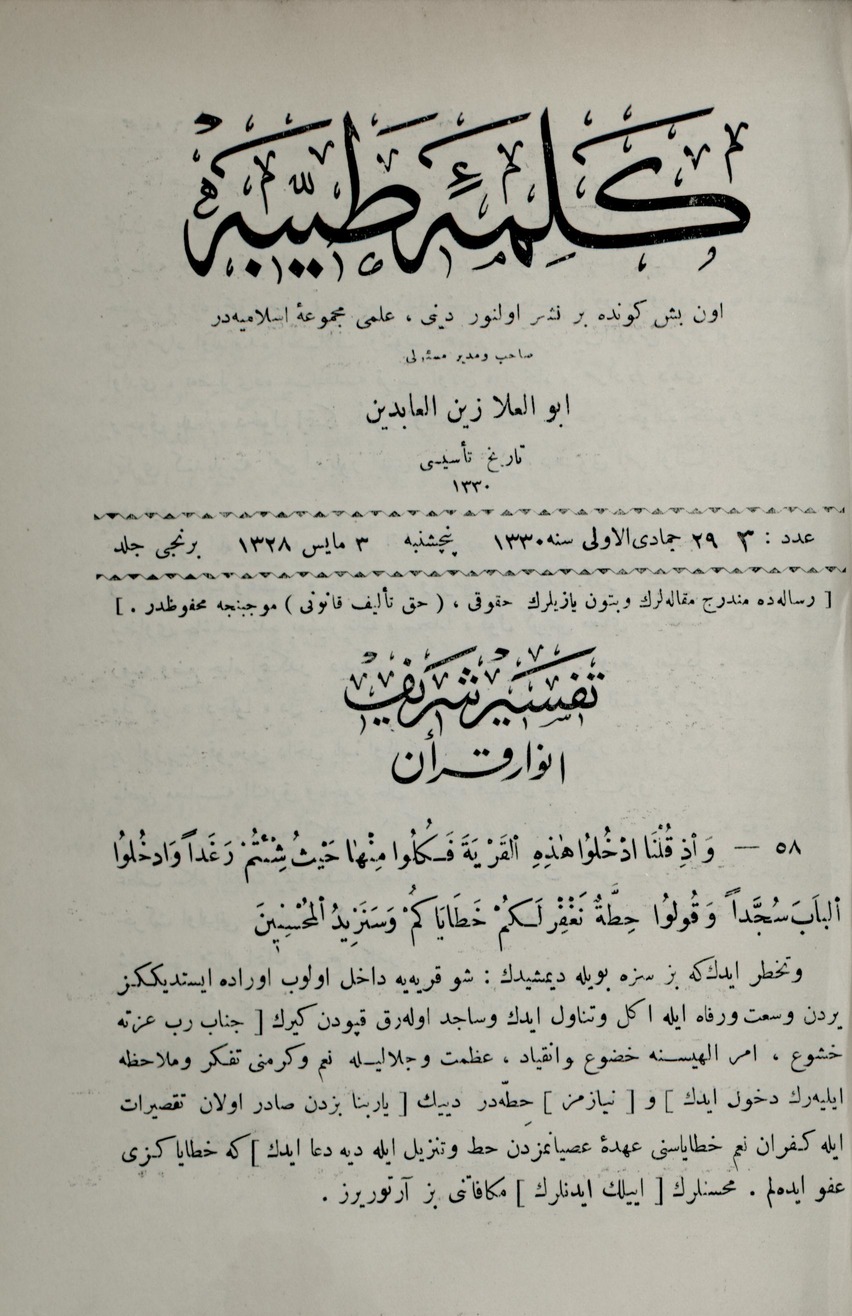 كلمۀ طيبه
اون بش كونده بر نشر اولنور دينى ، علمى مجموعۀ اسلاميه‌در
صاحب ومدير مسئولى
ابو العلا زين العابدين
تاريخ تأسيسى
١٣٣٠
عدد : ٣ ٢٩ جمادى‌الاولى سنه ١٣٣٠ پنجشنبه ٣ مايس ١٣٢٨ برنجى جلد
[ رساله‌ده مندرج مقاله‌لرك وبتون يازيلرك حقوقى ، ( حق تأليف قانونى ) موجبنجه محفوظدر . ]
تفسير شريف
انوار قرأن
٥٨ — وَاِذْ قُلْنَا ادْخُلُوا هٰذِهِ الْقَرْيَةَ فَكُلُوا مِنْهَا حَيْثُ شِئْتُمْ رَغَداً وَادْخُلُوا
الْبَابَ سُجَّداً وَقُولُوا حِطَّةٌ نَغْفِرْ لَكُمْ خَطَايَاكُمْ وَسَنَزِيدُ الْمُحْسِنِينَ
وتخطر ايدك‌كه بز سزه بويله ديمشيدك : شو قريه‌يه داخل اولوب اوراده ايستديككز
يردن وسعت ورفاه ايله اكل وتناول ايدك وساجد اوله‌رق قپودن كيرك [ جناب رب عزته
خشوع ، امر الهيسنه خضوع وانقياد ، عظمت وجلاليله نعم وكرمنى تفكر وملاحظه
ايليه‌رك دخول ايدك ] و [ نيازمز ] حِطّه‌در دييك [ ياربنا بزدن صادر اولان تقصيرات
ايله كفران نعم خطاياسنى عهدۀ عصيانمزدن حط وتنزيل ايله ديه دعا ايدك ] كه خطاياكزى
عفو ايده‌لم . محسنلرك [ اييلك ايدنلرك ] مكافاتنى بز آرتوريرز .